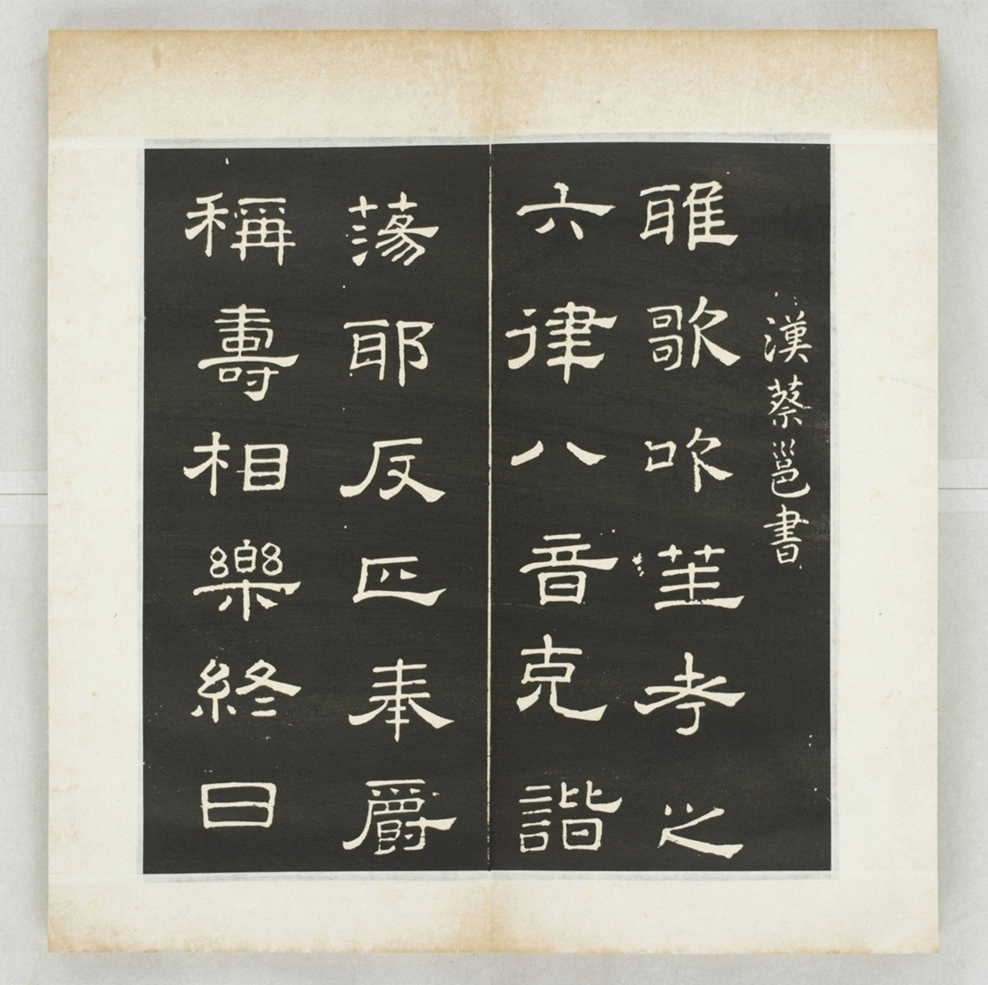 漢蔡邕書
雅歌吹笙考之
六律八音克諧
蕩耶反正奉爵
稱壽相樂終日